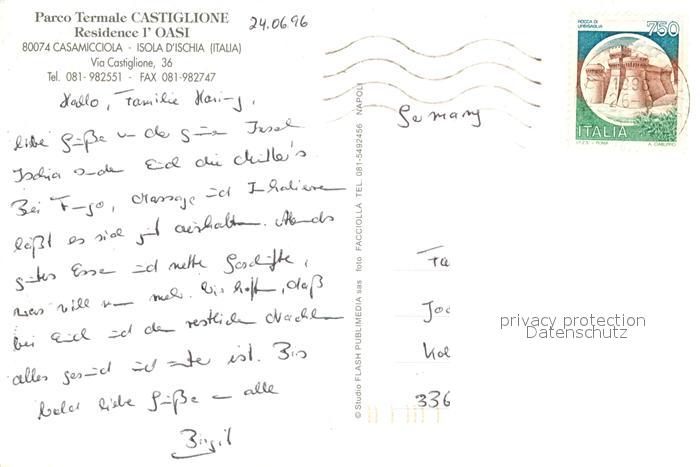 Parco Termale CASTIGLIONE
Residence l' OASI
80074 CASAMICCIOLA - ISOLA D'ISCHIA (ITALIA)
Via Castiglione, 36
Tel. 081-982551 - FAX 081-982747
24.06.96
Hallo, Familie
liebe Grüße von der grünen Insel
Ischia senden Euch die Müller's
Bei Fango, Massage und Inhalieren
läßt es sich gut aushalten. Abends
gutes Essen und nette Geschäfte,
was will man mehr. Wir hoffen, daß
bei Euch und den restlichen Nachbarn
alles gesund und munter ist. Bis
bald liebe Grüße an alle
Birgit
© Studio FLASH PUBLIMEDIA sas foto FACCIOLLA TEL. 081-5492456 NAPOLI
ROCCA DI
URBISAGLIA
750
ITALIA
I.P.Z.S. - ROMA
1996
Germany
Fa
Joa
Kol
336
privacy protection
Datenschutz